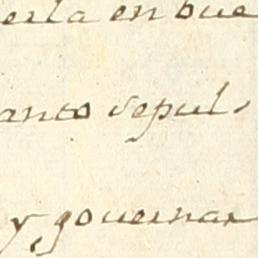 erla en bue
anto sepul-
y governar